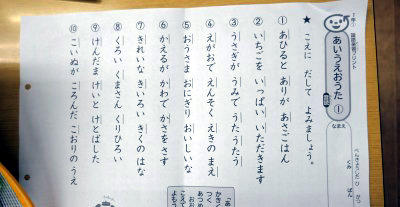 1年①
国語学習プリント
あいうえおうた ①
なまえ
べんきょうした ひ　がつ
くみ　ばん
★ こえに だして よみましょう。
① あひると ありが あさごはん
② いちごを いっぱい いただきます
③ うさぎが うみで うたうたう
④ えがおで えんそく えきのまえ
⑤ おうさま おにぎり おいしいな
⑥ かえるが かわで かさをさす
⑦ きれいな きいろい きくのはな
⑧ くろい くまさん くりひろい
⑨ けんだま けいと けとばした
⑩ こいぬが ころんだ こおりのうえ